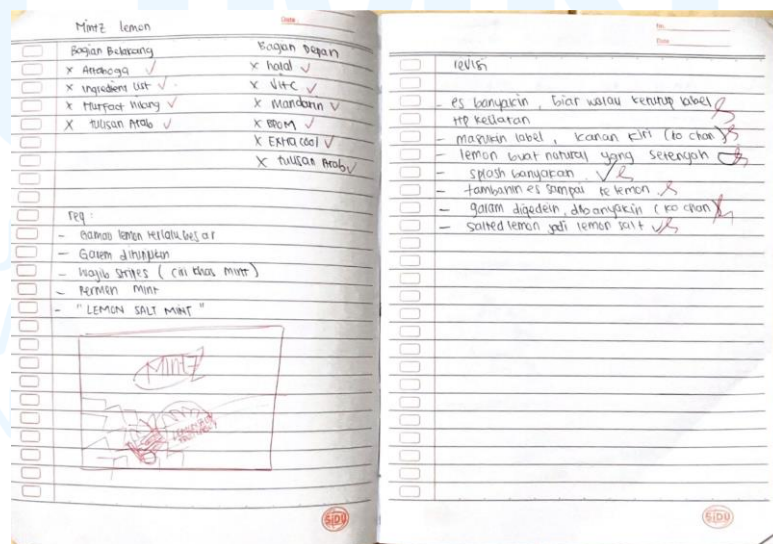 Mintz lemon
Date
Bagian Belakang
x Alfahoga ✓
x ingredient list ✓
x Nutfact hilang ✓
x tulisan Arab ✓
Bagian Depan
x halal ✓
x Vit C ✓
x Mandarin ✓
x BPOM ✓
x Extra cool ✓
x tulisan Arab ✓
req :
- Gamau lemon terlalu besar
- Garem ditunjukin
- Wajib stripes ( ciri khas mint )
- Permen Mint
- "LEMON SALT MINT"
Mintz
SIDU
No.
Date
revisi
- es banyakin, biar walau ketutup label
ttp keliatan
- masukin label, kanan kiri (ko chan)
- lemon buat natural yang setengah
- splash banyakan ✓
- tambahin es sampai ke lemon
- garam digedein, dibanyakin (ko chan)
- salted lemon jadi lemon salt ✓
SIDU